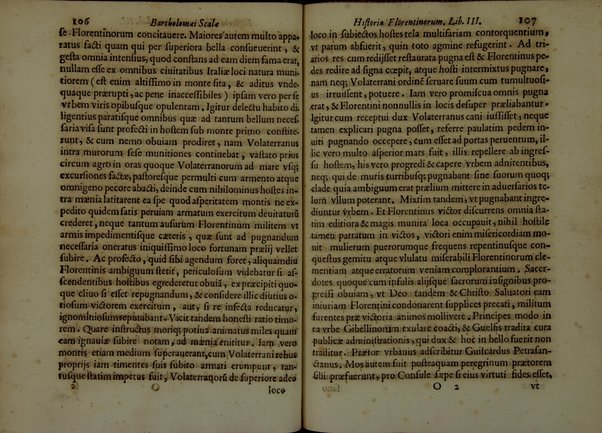 106 Bartholomæi Scalæ
se Florentinorum concitauere. Maiores autem multo appa-
ratus facti quam qui per superiora bella consueuerint, &
gesta omnia intensius, quod constans ad eam diem fama erat,
nullam esse ex omnibus ciuitatibus Italiæ loci natura muni
tiorem (est enim altissimo in monte sita, & aditus vnde-
quaque prærupti, ac pene inaccessibiles) ipsam vero per se
vrbem viris opibusque opulentam. Igitur delectu habito di
ligentius paratisque omnibus quæ ad tantum bellum necess-
saria visa sunt profecti in hostem sub monte primo constite
runt, & cum nemo obuiam prodiret, nam Volaterranus
intra murorum sese munitiones continebat, vastato prius
circum agro in oras quoque Volaterranorum ad mare vsq;
excursiones factæ, pastoresque permulti cum armento atque
omnigeno pecore abacti, deinde cum nihilominus hostes in
tra mænia latitarent ea spe quod asperitatem montis ne ex-
pedito quidem satis peruiam armatum exercitum deuitaturũ
crederet, neque tantum ausurum Florentinum militem vt
armis impedimentisque cæteris, quæ sunt ad pugnandum
necessaria oneratus iniquissimo loco fortunam prælij vellet
subire. Ac profecto, quid sibi agendum foret, aliquamdiu
Florentinis ambiguum stetit, periculosum videbatur si as-
scendentibus hostibus egrederetur obuiã, ex præcipiti quo-
que cliuo si esset repugnandum, & considere illic diutius o-
tiosum victorem exercitum, aut, si re infecta reducatur,
ignominiosum reputabant. Vicit tandem honesti ratio timo-
rem. Quare instructus moriq; potius animatus miles quam
eam ignauiæ subire notam, ad mænia enititur. Iam vero
montis etiam medium superauerant, cum Volaterrani rebus
proprijs iam timentes suis subito armati erumpunt, tan-
tusque statim impetus fuit, Volaterraņorũ de superiore adeo
O loco
Historiæ Florentinorum, Lib. III. 107
loco in subiectos hostes tela multifariam contorquentium,
vt parum abfuerit, quin toto agmine refugerint. Ad tri-
arios res cum redijsset restaurata pugna est & Florentinus pe-
des redire ad signa cœpit, atque hosti intermixtus pugnare,
nam neq; Volaterrani ordinē seruare suum cum tumultuosi-
us irruissent, potuere. Iam vero promiscua omnis pugna
erat, & Florentini nonnullis in locis desuper præliabantur.
Igitur cum receptui dux Volaterranus cani iussisset, neque
tamen explicari pugna posset, referre paulatim pedem in-
uiti pugnando occepere, cum esset ad portas peruentum, il-
lic vero multo asperior mars fuit, illis repellere ab ingres-
su hostem, his vero progredi & capere vrbem adnitentibus,
neq; qui de muris turribusq; pugnabant sine suorum quoq;
clade quia ambiguum erat prælium mittere in aduersarios te-
lum vllum poterant. Mixtim tandem, vt pugnabant ingre-
diuntur vrbem. Et Florentinus victor discurrens omnia sta-
tim editiora & magis munita loca occupauit, nihil hostile
tamen patratum in victos, victori enim misericordiam mo-
uit mulierum puerorumque frequens repentinusque con-
questus gemitu atque vlulatu miserabili Florentinorum cle-
mentiam atque erratorum veniam complorantium. Sacer-
dotes quoque cum infulis alijsque sacrorum insignibus pro-
gressi obuiam, vt Deo tandem & Christo Saluatori eam
iniuriam Florentini condonarent supplices precati, militum
furentes præ victoria animos mollivere. Principes modo in
ea vrbe Gibellinorum exulare coacti, & Guelfis tradita cura
publicæ administrationis, qui dux & hoc in bello fuerit non
traditur. Prætor vrbanus adscribitur Guilcardus Petrasan-
ctanus. Mos autem fuit posteaquam peregrinum prætorem
sibi præfuerunt, pro Consule sæpe si eius virtuti fides esset,
O 2 vt